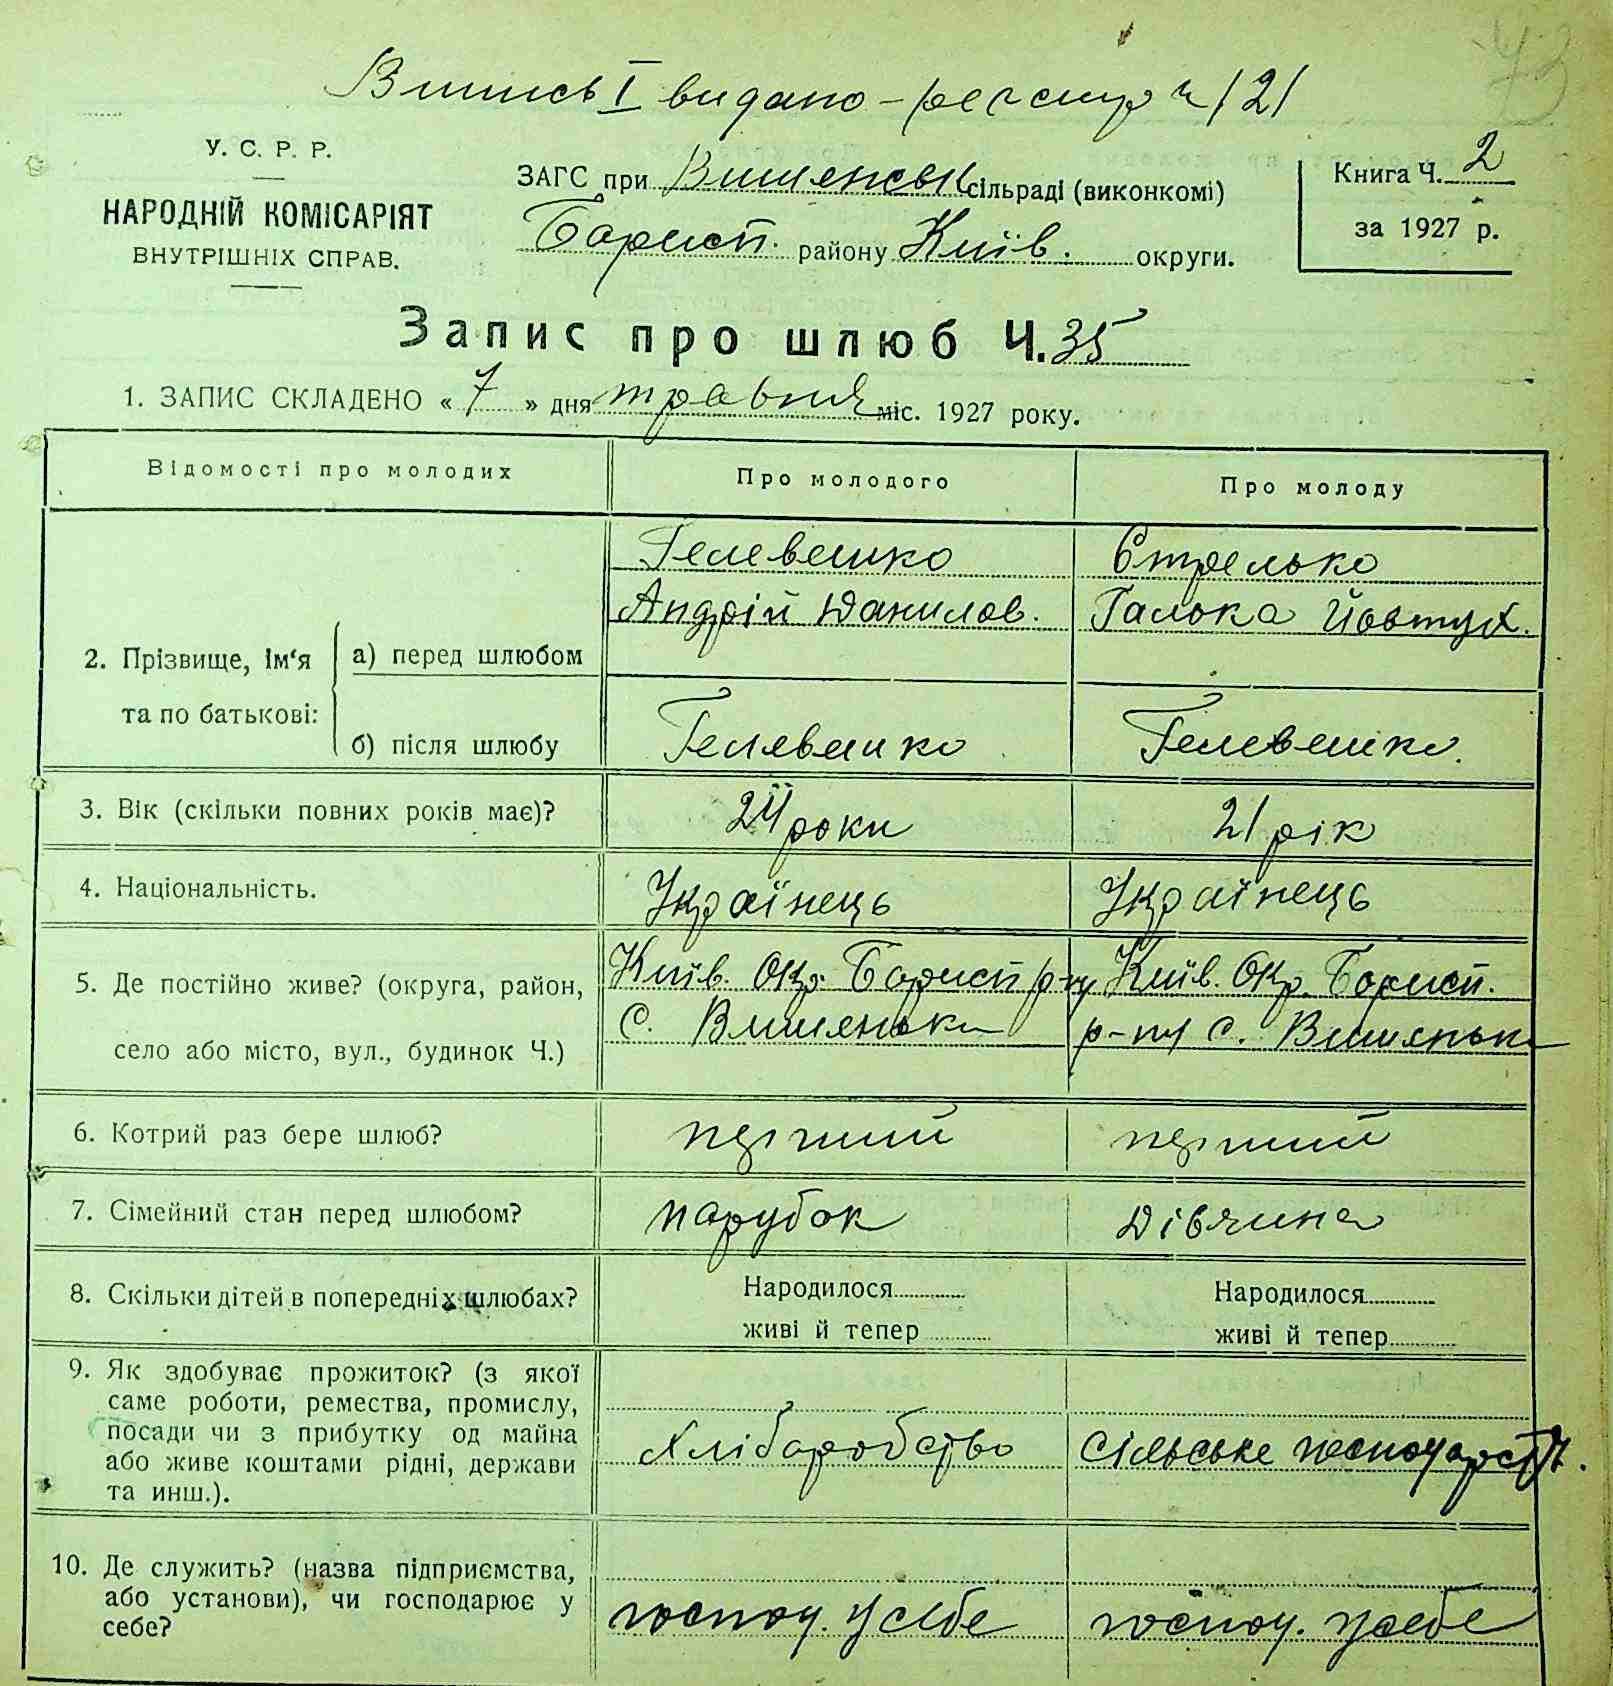 Випись I видано - реєстр ч 121
У. С. Р. Р.
НАРОДНІЙ КОМІСАРІЯТ
ВНУТРІШНІХ СПРАВ.
ЗАГС при Вишенськ сільраді (виконкомі)
Борисп. району Київ. округи.
Книга Ч. 2
за 1927 р.
Запис про шлюб Ч. 35
1. ЗАПИС СКЛАДЕНО « 7 » дня травня міс. 1927 року.
Відомості про молодих
Про молодого
Про молоду
2. Прізвище, ім‘я та по батькові:
а) перед шлюбом
Гелевешко
Андрій Данилов.
Стрелько
Галька Йовтух.
б) після шлюбу
Гелевешко
Гелевешко.
3. Вік (скільки повних років має)?
24 роки
21 рік
4. Національність.
Українець
Українець
5. Де постійно живе? (округа, район,
село або місто, вул., будинок Ч.)
Київ. Окр. Борисп р-ну
с. Вишеньки
Київ. Окр. Борисп.
р-ну с. Вишеньки
6. Котрий раз бере шлюб?
перший
перший
7. Сімейний стан перед шлюбом?
парубок
дівчина
8. Скільки дітей в попередніх шлюбах?
Народилося
живі й тепер
Народилося
живі й тепер
9. Як здобуває прожиток? (з якої
саме роботи, ремества, промислу,
посади чи з прибутку од майна
або живе коштами рідні, держави
та инш.).
Хліборобство
сільське господарст.
10. Де служить? (назва підприємства,
або установи), чи господарює у
себе?
господ. у себе
господ. у себе